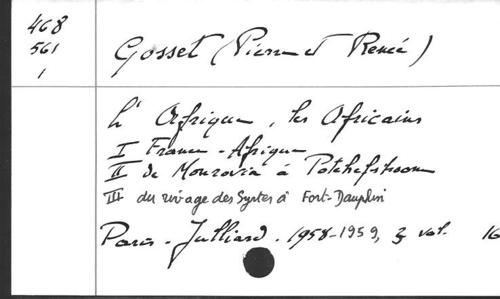 468
561
1
Gosset (Pierre et Renée)
L' Afrique, les Africains
I France - Afrique
II de Monrovia à Potchefstroom
III du rivage des Syrtes à Fort-Dauphin
Paris - Julliard. 1958-1959, 3 vol. 16